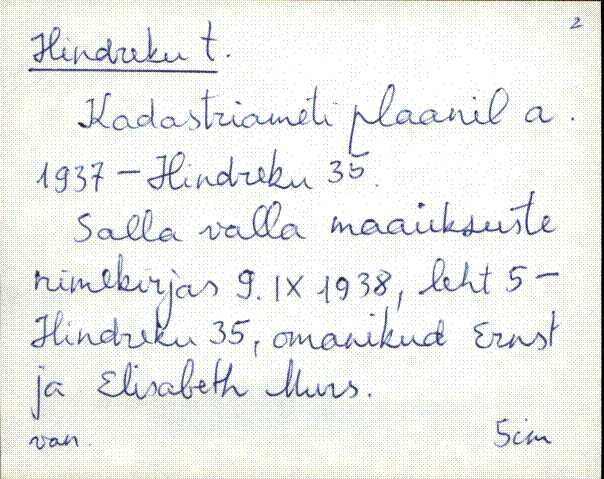 2
Hindreku t.
Kadastriameti plaanil a.
1937 - Hindreku 35.
Salla valla maaüksuste
nimekirjas 9. IX 1938, leht 5 -
Hindreku 35, omanikud Ernst
ja Elisabeth Murs.
van. Sim